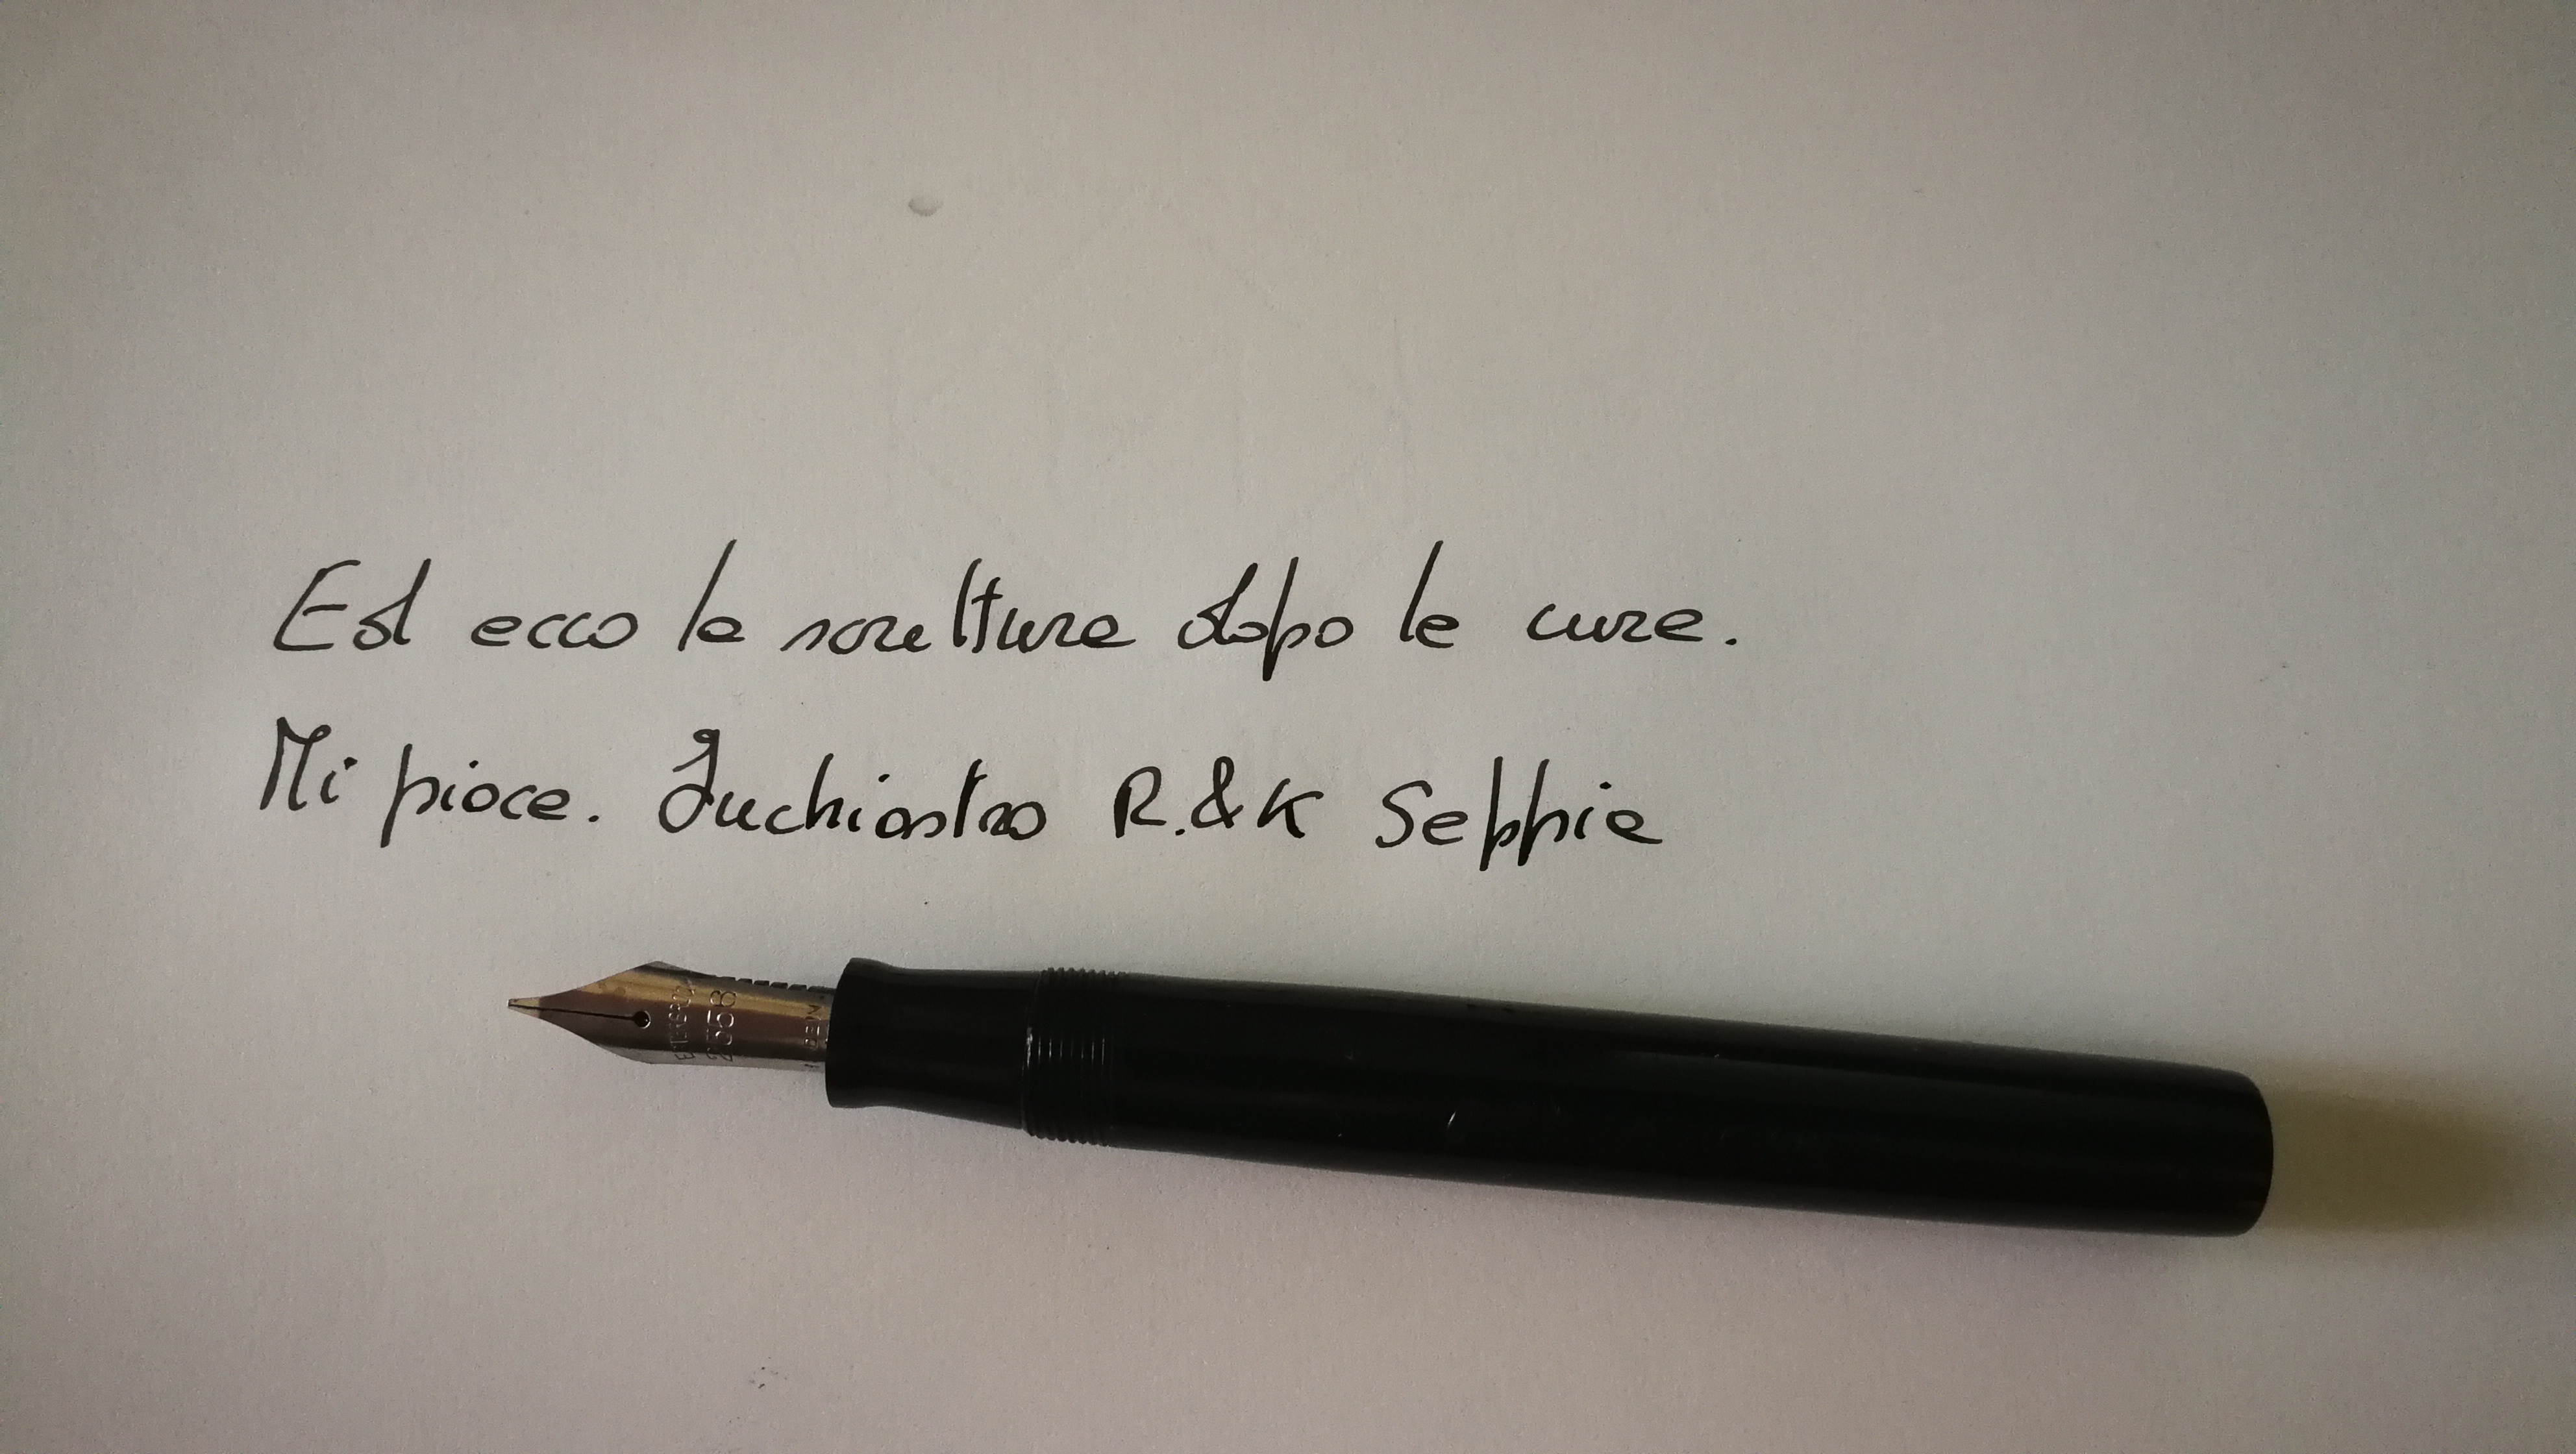 Ed ecco la scrittura dopo le cure.
Mi piace. Inchiostro R.&K Seppia
ESTERBROOK
2668